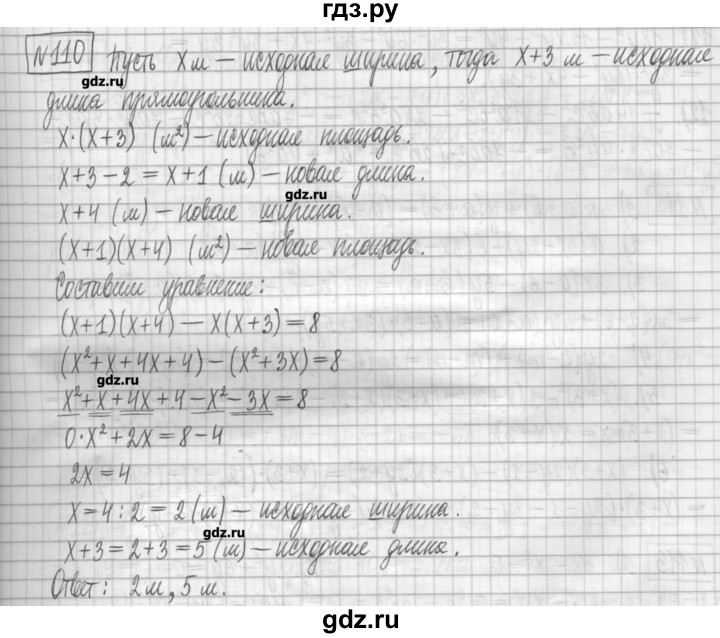 гдз.ру
№110 Пусть x м – исходная ширина, тогда x+3 м – исходная
gdz.ru
длина прямоугольника.
x·(x+3) (м²) – исходная площадь.
x+3–2 = x+1 (м) – новая длина.
gdz.ru
x+4 (м) – новая ширина.
(x+1)(x+4) (м²) – новая площадь.
Составим уравнение:
(x+1)(x+4) – x(x+3) = 8
(x²+x+4x+4) – (x²+3x) = 8
gdz.ru
x²+x+4x+4–x²–3x = 8
0·x²+2x = 8–4
2x = 4
x = 4:2 = 2 (м) – исходная ширина.
gdz.ru
x+3 = 2+3 = 5 (м) – исходная длина.
Ответ: 2 м, 5 м.
gdz.ru